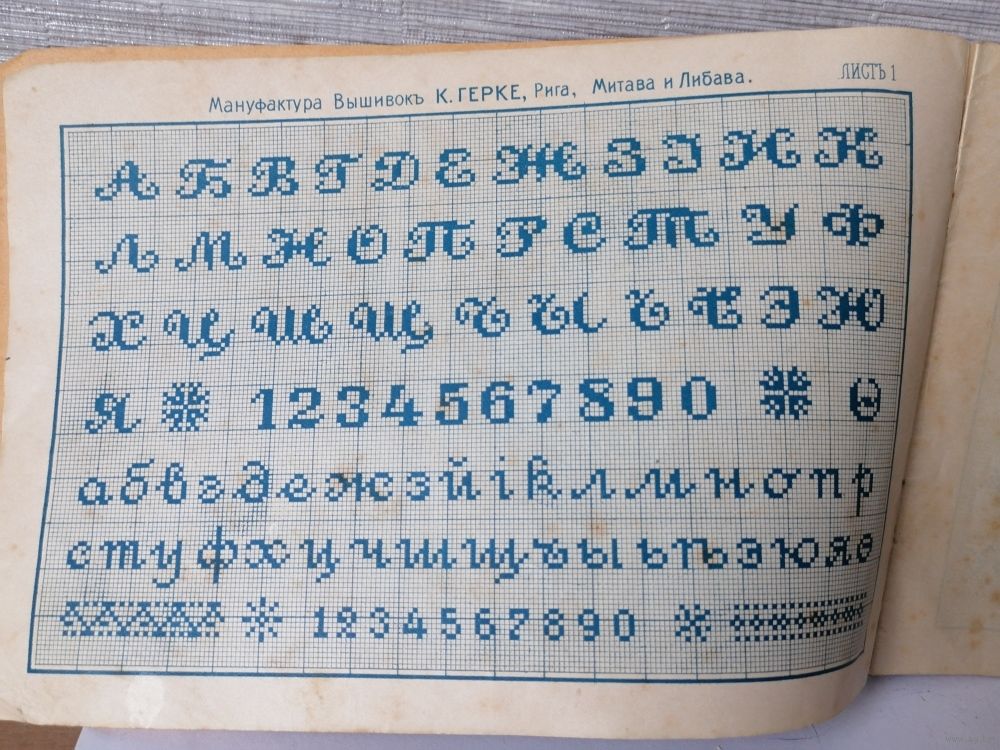 ЛИСТЪ 1
Мануфактура Вышивокъ К. ГЕРКЕ, Рига, Митава и Либава.
А Б В Г Д Е Ж З І И К
Л М Н О П Р С Т У Ф
Х Ц Ш Щ Ъ Ы Ь Ѣ Э Ю
Я 1 2 3 4 5 6 7 8 9 0 Ѳ
а б в г д е ж з й і к л м н о п р
с т у ф х ц ч ш щ ъ ы ь ѣ э ю я ѳ
1 2 3 4 5 6 7 8 9 0